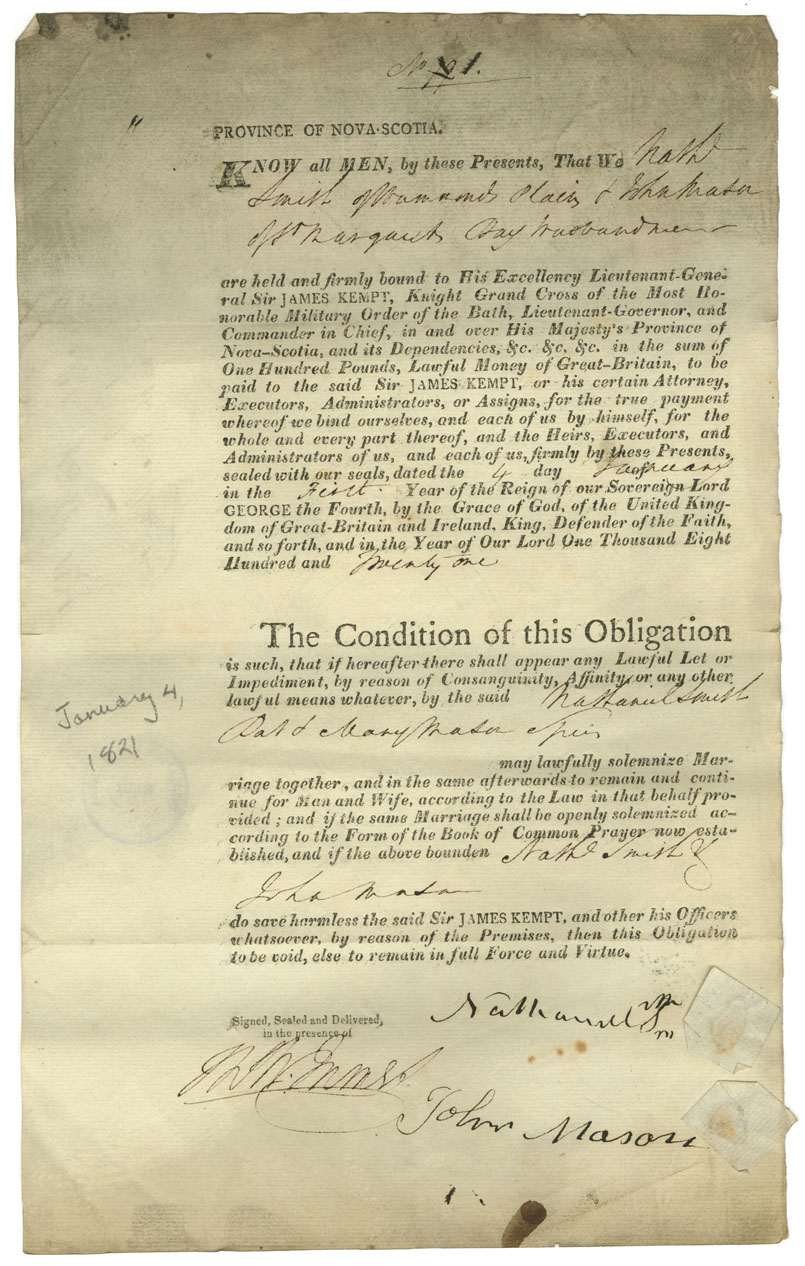 No. 1.
PROVINCE OF NOVA-SCOTIA.
KNOW all MEN, by these Presents, That We Nathl
Smith of Hammonds Plains & John Mason
of St Margarets Bay Husbandmen
are held and firmly bound to His Excellency Lieutenant-Gene-
ral Sir JAMES KEMPT, Knight Grand Cross of the Most Ho-
norable Military Order of the Bath, Lieutenant-Governor, and
Commander in Chief, in and over His Majesty's Province of
Nova-Scotia, and its Dependencies, &c. &c. &c. in the sum of
One Hundred Pounds, Lawful Money of Great-Britain, to be
paid to the said Sir JAMES KEMPT, or his certain Attorney,
Executors, Administrators, or Assigns, for the true payment
whereof we bind ourselves, and each of us by himself, for the
whole and every part thereof, and the Heirs, Executors, and
Administrators of us, and each of us, firmly by these Presents,
sealed with our seals, dated the 4 day of January
in the First Year of the Reign of our Sovereign Lord
GEORGE the Fourth, by the Grace of God, of the United King-
dom of Great-Britain and Ireland, King, Defender of the Faith,
and so forth, and in the Year of Our Lord One Thousand Eight
Hundred and Twenty one
The Condition of this Obligation
is such, that if hereafter there shall appear any Lawful Let or
Impediment, by reason of Consanguinity, Affinity, or any other
lawful means whatever, by the said Nathaniel Smith
Bat & Mary Mason Spir
may lawfully solemnize Mar-
riage together, and in the same afterwards to remain and conti-
nue for Man and Wife, according to the Law in that behalf pro-
vided; and if the same Marriage shall be openly solemnized ac-
cording to the Form of the Book of Common Prayer now esta-
blished, and if the above bounden Nathl Smith &
John Mason
do save harmless the said Sir JAMES KEMPT, and other his Officers
whatsoever, by reason of the Premises, then this Obligation
to be void, else to remain in full Force and Virtue.
January 4,
1821
Signed, Sealed and Delivered,
in the presence of
Nathaniell Sm
John Mason